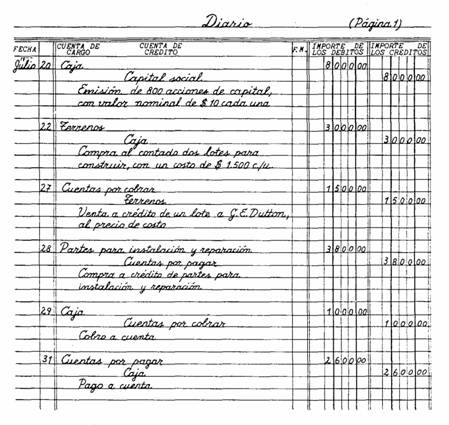 Diario (Página 1)
FECHA CUENTA DE CARGO CUENTA DE CRÉDITO F.M. IMPORTE DE LOS DÉBITOS IMPORTE DE LOS CRÉDITOS
Julio 20 Caja 8 0 0 0 00
Capital social 8 0 0 0 00
Emisión de 800 acciones de capital,
con valor nominal de $ 10 cada una
22 Terrenos 3 0 0 0 00
Caja 3 0 0 0 00
Compra al contado dos lotes para
construir, con un costo de $ 1.500 c/u.
27 Cuentas por cobrar 1 5 0 0 00
Terrenos 1 5 0 0 00
Venta a crédito de un lote a G.E. Dutton,
al precio de costo
28 Partes para instalación y reparación 3 8 0 0 00
Cuentas por pagar 3 8 0 0 00
Compra a crédito de partes para
instalación y reparación
29 Caja 1 0 0 0 00
Cuentas por cobrar 1 0 0 0 00
Cobro a cuenta
31 Cuentas por pagar 2 6 0 0 00
Caja 2 6 0 0 00
Pago a cuenta